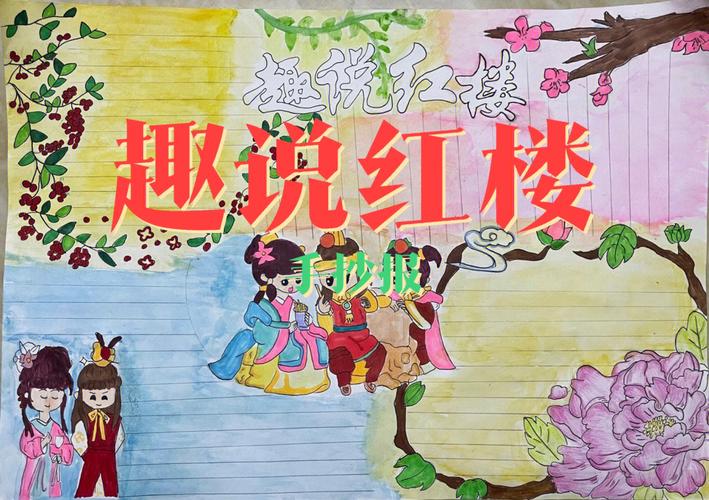 趣说红楼
趣说红楼
手抄报